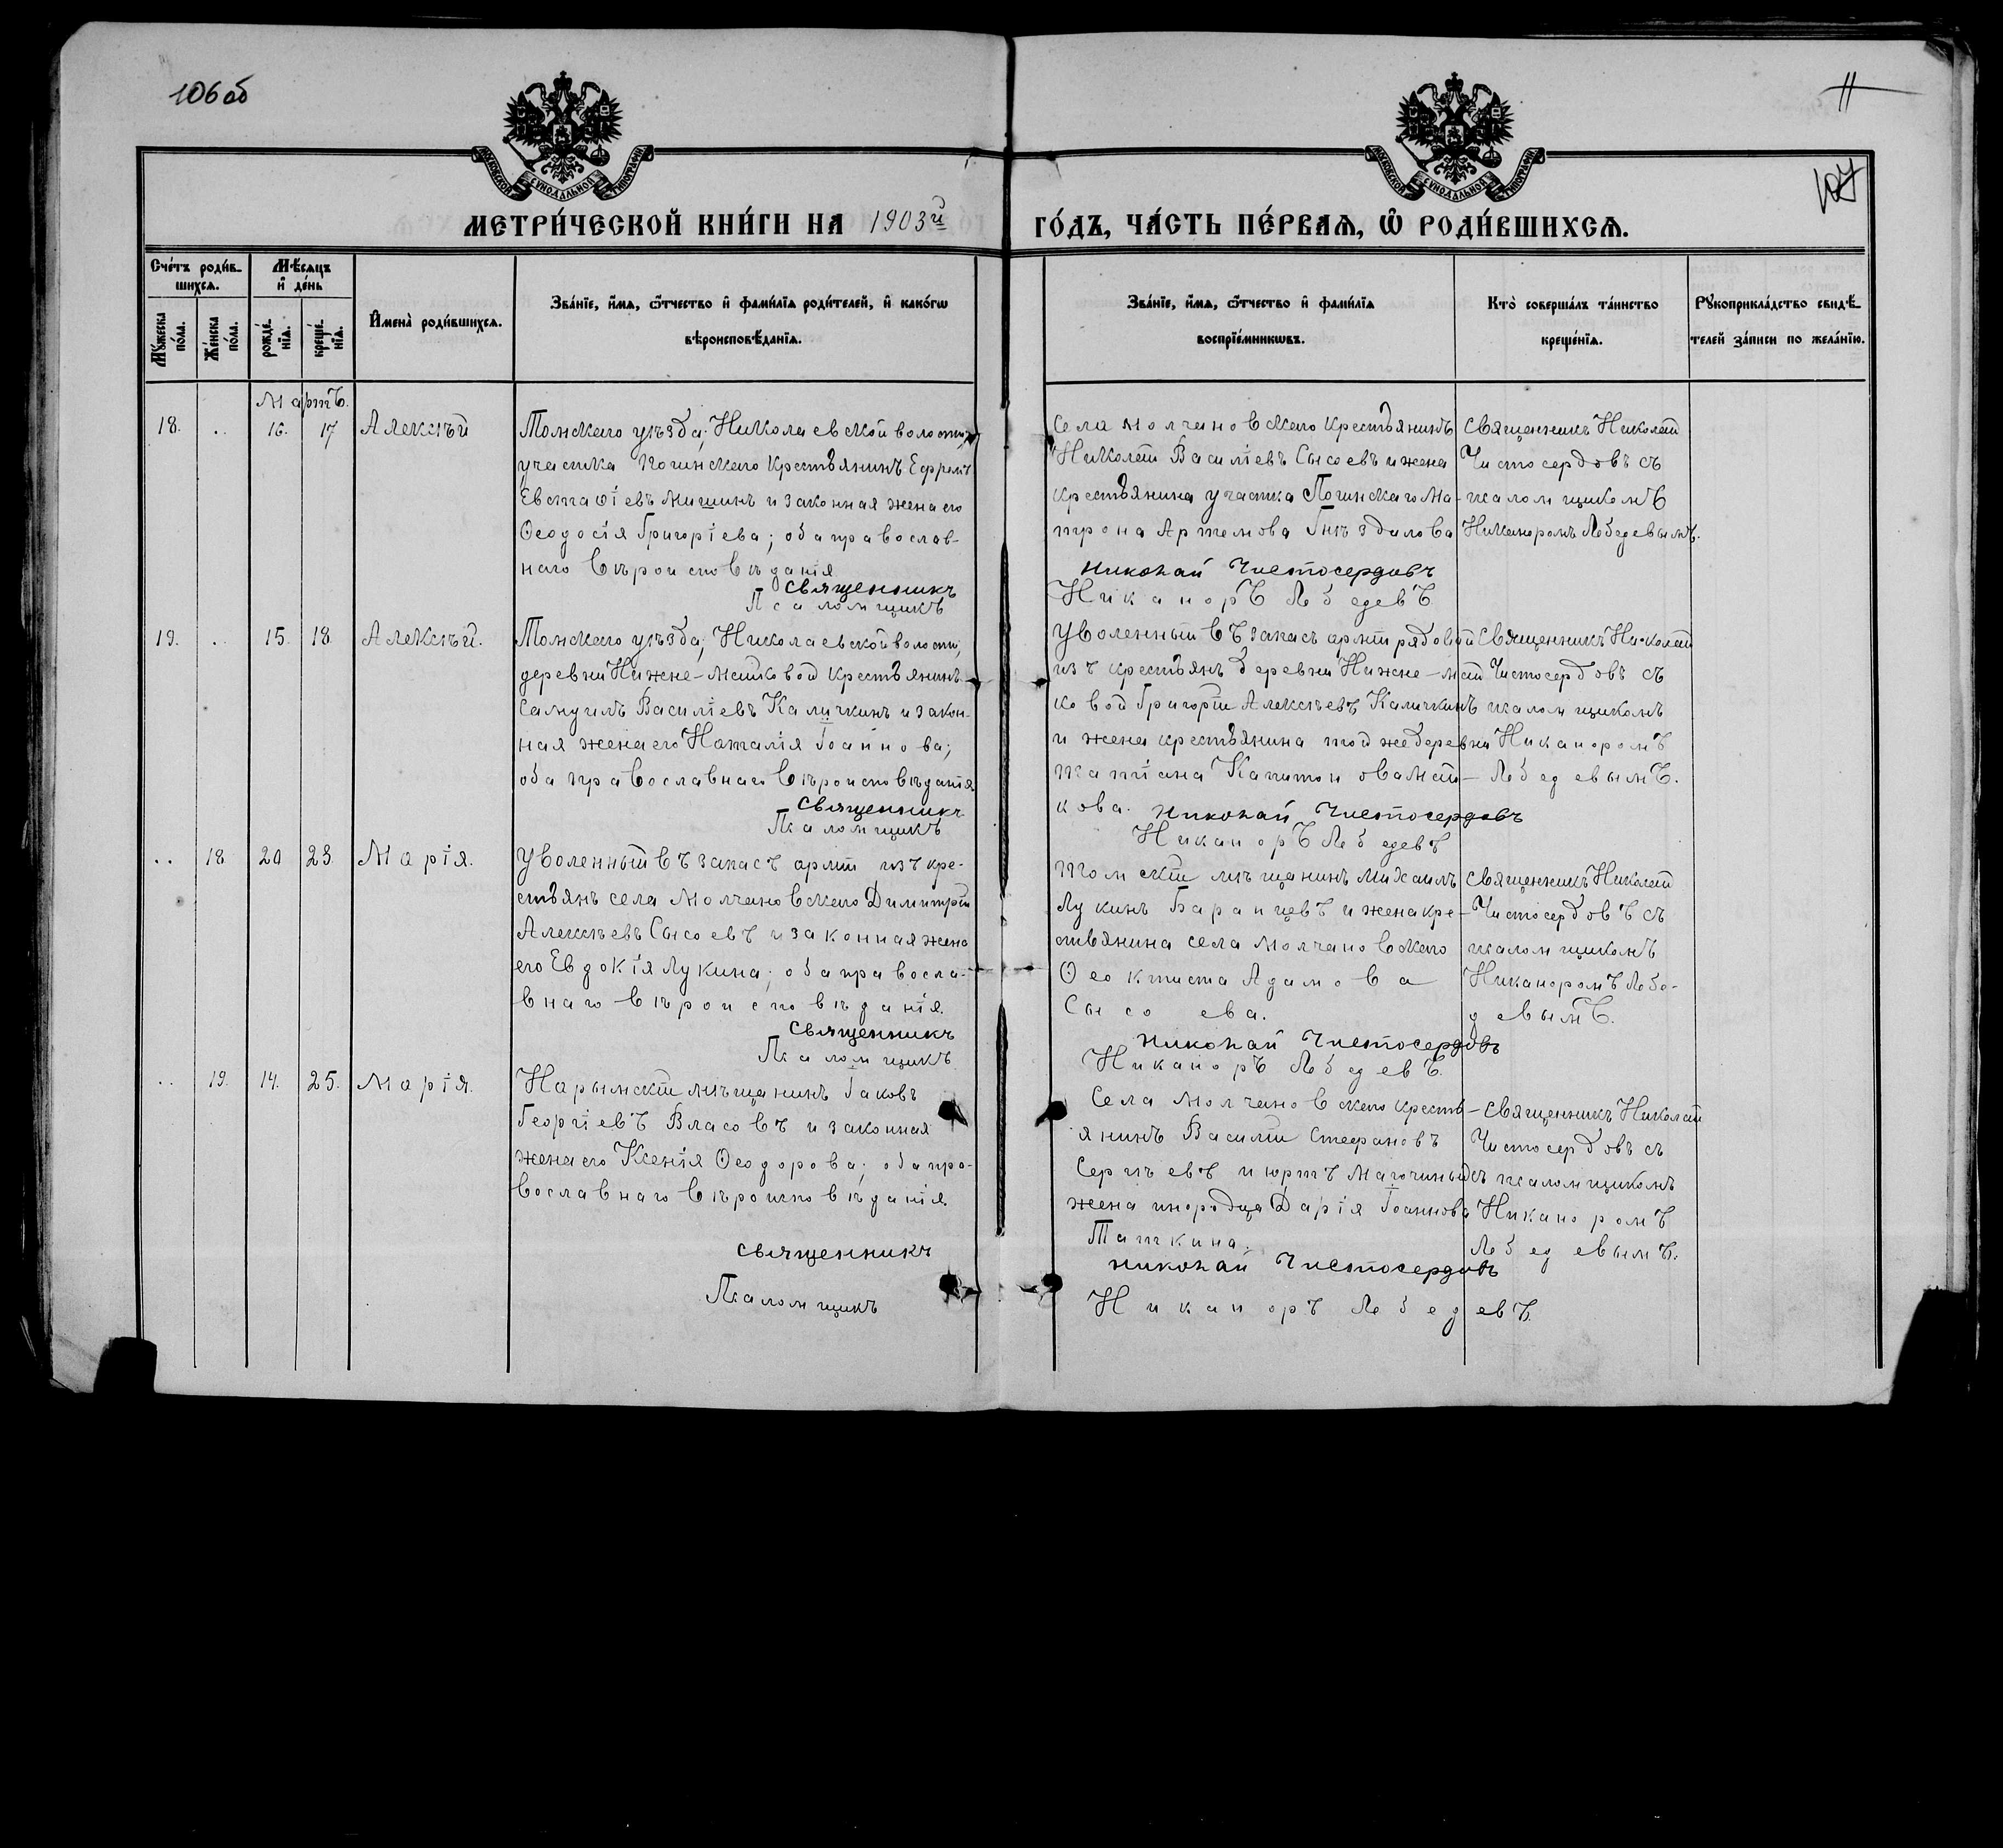 106 об
11
107
МОСКОВСКОЙ СѴНОДАЛЬНОЙ ТИПОГРАФІИ
МОСКОВСКОЙ СѴНОДАЛЬНОЙ ТИПОГРАФІИ
МЕТРИ́ЧЕСКОЙ КНИ́ГИ НА 1903й ГО́ДЪ, ЧА́СТЬ ПЕ́РВАѦ, Ѡ҆ РОДИ́ВШИХСѦ.
Сче́тъ роди́в-
шихсѧ.
Мꙋ́жеска
по́ла.
Же́нска
по́ла.
Мѣ́сяцъ
и҆ де́нь
рожде́-
нїѧ.
креще́-
нїѧ.
И҆мена̀ роди́вшихсѧ.
Зва́нїе, и҆́мѧ, ѻ҆́тчество и҆ фами́лїѧ роди́телей, и҆ како́гѡ
вѣроисповѣ́данїѧ.
Зва́нїе, и҆́мѧ, ѻ҆́тчество и҆ фами́лїѧ
воспрїе́мникѡвъ.
Кто̀ соверша́лъ та́инство
креще́нїѧ.
Рꙋкоприкла́дство свидѣ́-
телей за́писи по жела́нїю.
Мартъ.
18. .. 16. 17 Алексѣй
Томскаго уѣзда, Николаевской волости,
участка Погинскаго крестьянинъ Ефремъ
Евстаѳіевъ Мишинъ и законная жена его
Ѳеодосія Григоріева; оба православ-
наго вѣроисповѣданія
Священникъ
Псаломщикъ
Села Молчановскаго крестьянинъ
Николай Василіевъ Сысоевъ и жена
крестьянина участка Погинскаго Ма-
трона Артемова Гнѣздилова
Николай Чистосердовъ
Никаноръ Лебедевъ
Священникъ Николай
Чистосердовъ съ
псаломщикомъ
Никаноромъ Лебедевымъ.
19. .. 15. 18 Алексѣй.
Томскаго уѣзда, Николаевской волости,
деревни Нижне-Майковой крестьянинъ
Самуилъ Василіевъ Каличкинъ и закон-
ная жена его Наталія Іоаннова;
оба православнаго вѣроисповѣданія
Священникъ
Псаломщикъ
Уволенный въ запасъ арміи рядовой
изъ крестьянъ деревни Нижне-Май
ковой Григорій Алексѣевъ Каличкинъ
и жена крестьянина той же деревни
Татіана Капитонова Май-
кова.
Николай Чистосердовъ
Никаноръ Лебедевъ
Священникъ Николай
Чистосердовъ съ
псаломщикомъ
Никаноромъ
Лебедевымъ.
.. 18 20 23. Марія.
Уволенный въ запасъ арміи изъ кре-
стьянъ села Молчановскаго Димитрій
Алексѣевъ Сысоевъ и законная жена
его Евдокія Лукина; оба правосла-
внаго вѣроисповѣданія.
Священникъ
Псаломщикъ
Томскій мѣщанинъ Михаилъ
Лукинъ Баранцевъ и жена кре-
стьянина села Молчановскаго
Ѳеоктиста Адамова
Сысоева.
Николай Чистосердовъ
Никаноръ Лебедевъ.
Священникъ Николай
Чистосердовъ съ
псаломщикомъ
Никаноромъ Лебе-
девымъ.
.. 19. 14. 25. Марія.
Нарымскій мѣщанинъ Іаковъ
Георгіевъ Власовъ и законная
жена его Ксенія Ѳеодорова; оба пра-
вославнаго вѣроисповѣданія.
Священникъ
Псаломщикъ
Села Молчановскаго кресть-
янинъ Василій Стефановъ
Сергѣевъ и юртъ Магочиныхъ
жена инородца Дарія Іоаннова
Николай Чистосердовъ
Никаноръ Лебедевъ.
Священникъ Николай
Чистосердовъ съ
псаломщикомъ
Никаноромъ
Лебедевымъ.